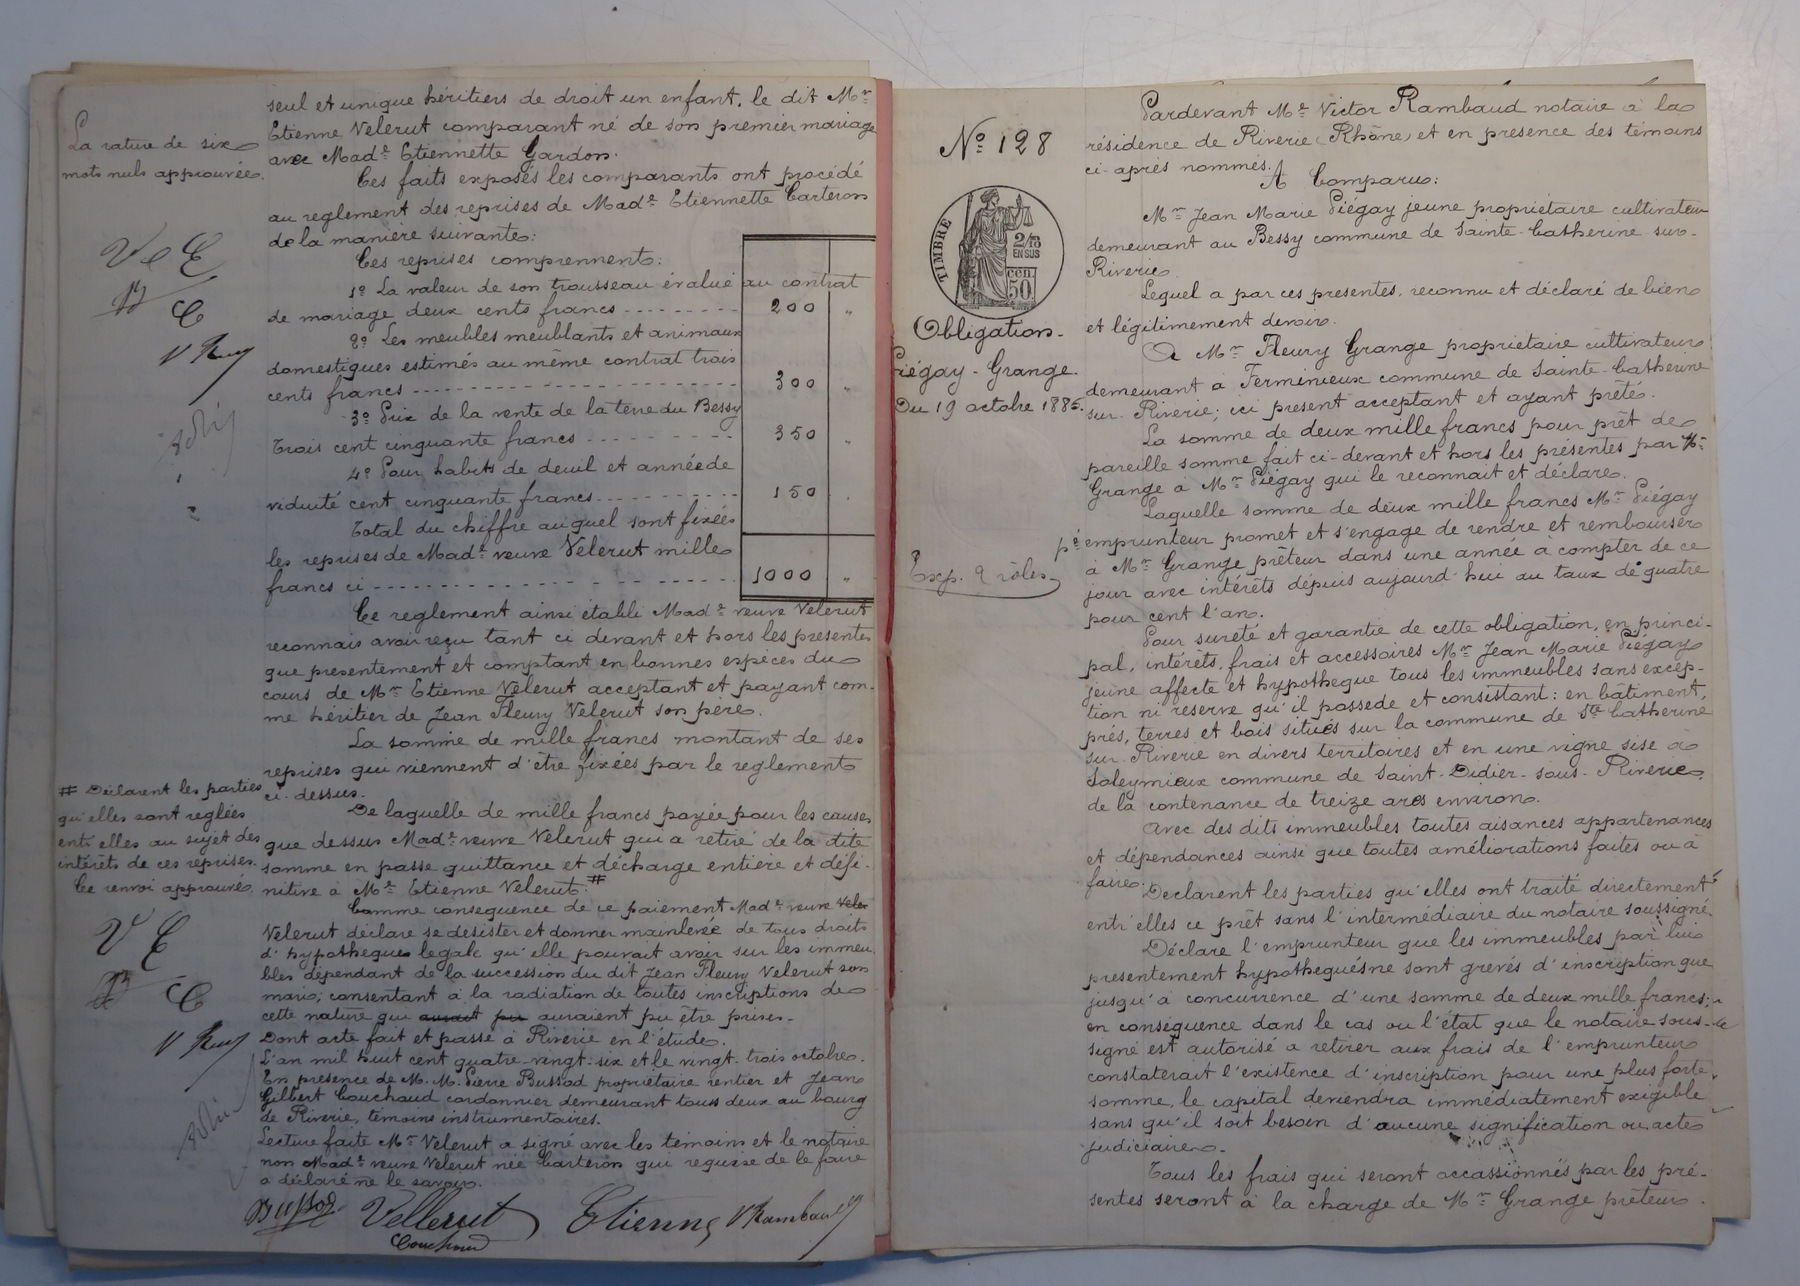 seul et unique héritiers de droit un enfant, le dit Mr
Etienne Velerut comparant né de son premier mariage
avec Made Etiennette Gardon.
La rature de six
mots nuls approuvée.
Ces faits exposés les comparants ont procédé
au reglement des reprises de Made Etiennette Carteron
de la manière suivante:
Ces reprises comprennent:
1o La valeur de son trousseau évalué au contrat
de mariage deux cents francs - - - - - - - - - 200 "
2o Les meubles meublants et animaux
domestiques estimés au même contrat trois
cents francs - - - - - - - - - - - - - - - - 300 "
3o Prix de la vente de la terre du Bessy
Trois cent cinquante francs - - - - - - - - - 350 "
4o Pour habits de deuil et année de
viduité cent cinquante francs - - - - - - - - 150 "
Total du chiffre auquel sont fixées
les reprises de Made veuve Velerut mille
francs ci - - - - - - - - - - - - - - - - - 1000 "
V e E
C
V Ray
Ce reglement ainsi établi Made veuve Velerut
reconnais avoir reçu tant ci devant et hors les presentes
que presentement et comptant en bonnes espèces du
cours de Mr Etienne Velerut acceptant et payant com-
me héritier de Jean Fleury Velerut son père.
La somme de mille francs montant de ses
reprises qui viennent d'être fixées par le reglement
ci-dessus.
De laquelle de mille francs payée pour les causes
que dessus Made veuve Velerut qui a retiré de la dite
somme en passe quittance et décharge entière et défi-
nitive à Mr Etienne Velerut. #
# Déclarent les parties
qu'elles sont reglées
entr elles au sujet des
intérêts de ces reprises.
Ce renvoi approuvé
Comme consequence de ce paiement Made veuve Veler
Velerut déclare se desister et donner mainlevée de tous droits
d'hypotheques legale qu'elle pouvait avoir sur les immeu
bles dépendant de la succession du dit Jean Fleury Velerut son
mari; consentant à la radiation de toutes inscriptions de
cette nature qui aurait pu auraient pu etre prises.
V E
C
V Ray
Dont acte fait et passé à Riverie en l'étude.
L'an mil huit cent quatre-vingt-six et le vingt-trois octobre.
En présence de M. M. Pierre Bussod propriétaire rentier et Jean
Gilbert Couchoud cordonnier demeurant tous deux au bourg
de Riverie, témoins instrumentaires.
Lecture faite Mr Velerut a signé avec les témoins et le notaire
non Made veuve Velerut née Carteron qui requise de le faire
a déclaré ne le savoir.
Bussod Vellerut Etienne V Rambaud
Couchoud
No 128
TIMBRE
2/10
EN SUS
cen
50
Obligation.
Piégay - Grange.
Du 19 octobre 1886.
Exp. 2 rôles
Pardevant Me Victor Rambaud notaire à la
résidence de Riverie (Rhône) et en presence des témoins
ci-après nommés.
A Comparu:
Mr Jean Marie Piégay jeune propriétaire cultivateur
demeurant au Bessy commune de Sainte-Catherine-sur-
Riverie.
Lequel a par ces presentes, reconnu et déclaré de bien
et légitimement devoir.
A Mr Fleury Grange propriétaire cultivateur
demeurant à Terminieux commune de Sainte-Catherine
sur-Riverie; ici présent acceptant et ayant prêté.
La somme de deux mille francs pour prêt de
pareille somme fait ci-devant et hors les présentes par Mr
Grange à Mr Piégay qui le reconnait et déclare.
Laquelle somme de deux mille francs Mr Piégay
emprunteur promet et s'engage de rendre et rembourser
à Mr Grange prêteur dans une année à compter de ce
jour avec intérêts depuis aujourd'hui au taux de quatre
pour cent l'an.
Pour sureté et garantie de cette obligation, en princi-
pal, intérêts, frais et accessoires Mr Jean Marie Piégay
jeune affecte et hypotheque tous les immeubles sans excep-
tion ni reserve qu'il possede et consistant: en bâtiment,
prés, terres et bois situés sur la commune de Ste Catherine
sur-Riverie en divers territoires et en une vigne sise à
Soleymieux commune de Saint-Didier-sous-Riverie,
de la contenance de treize ares environ.
Avec des dits immeubles toutes aisances appartenances
et dépendances ainsi que toutes améliorations faites ou à
faire.
Declarent les parties qu'elles ont traité directement
entr'elles ce prêt sans l'intermédiaire du notaire soussigné.
Déclare l'emprunteur que les immeubles par lui
presentement hypothequés ne sont grevés d'inscription que
jusqu'à concurrence d'une somme de deux mille francs;
en conséquence dans le cas ou l'état que le notaire sous-
signé est autorisé a retirer aux frais de l'emprunteur
constaterait l'existence d'inscription pour une plus forte
somme, le capital deviendra immédiatement exigible
sans qu'il soit besoin d'aucune signification ou acte
judiciaire.
Tous les frais qui seront accassionnés par les pré-
sentes seront à la charge de Mr Grange prêteur.